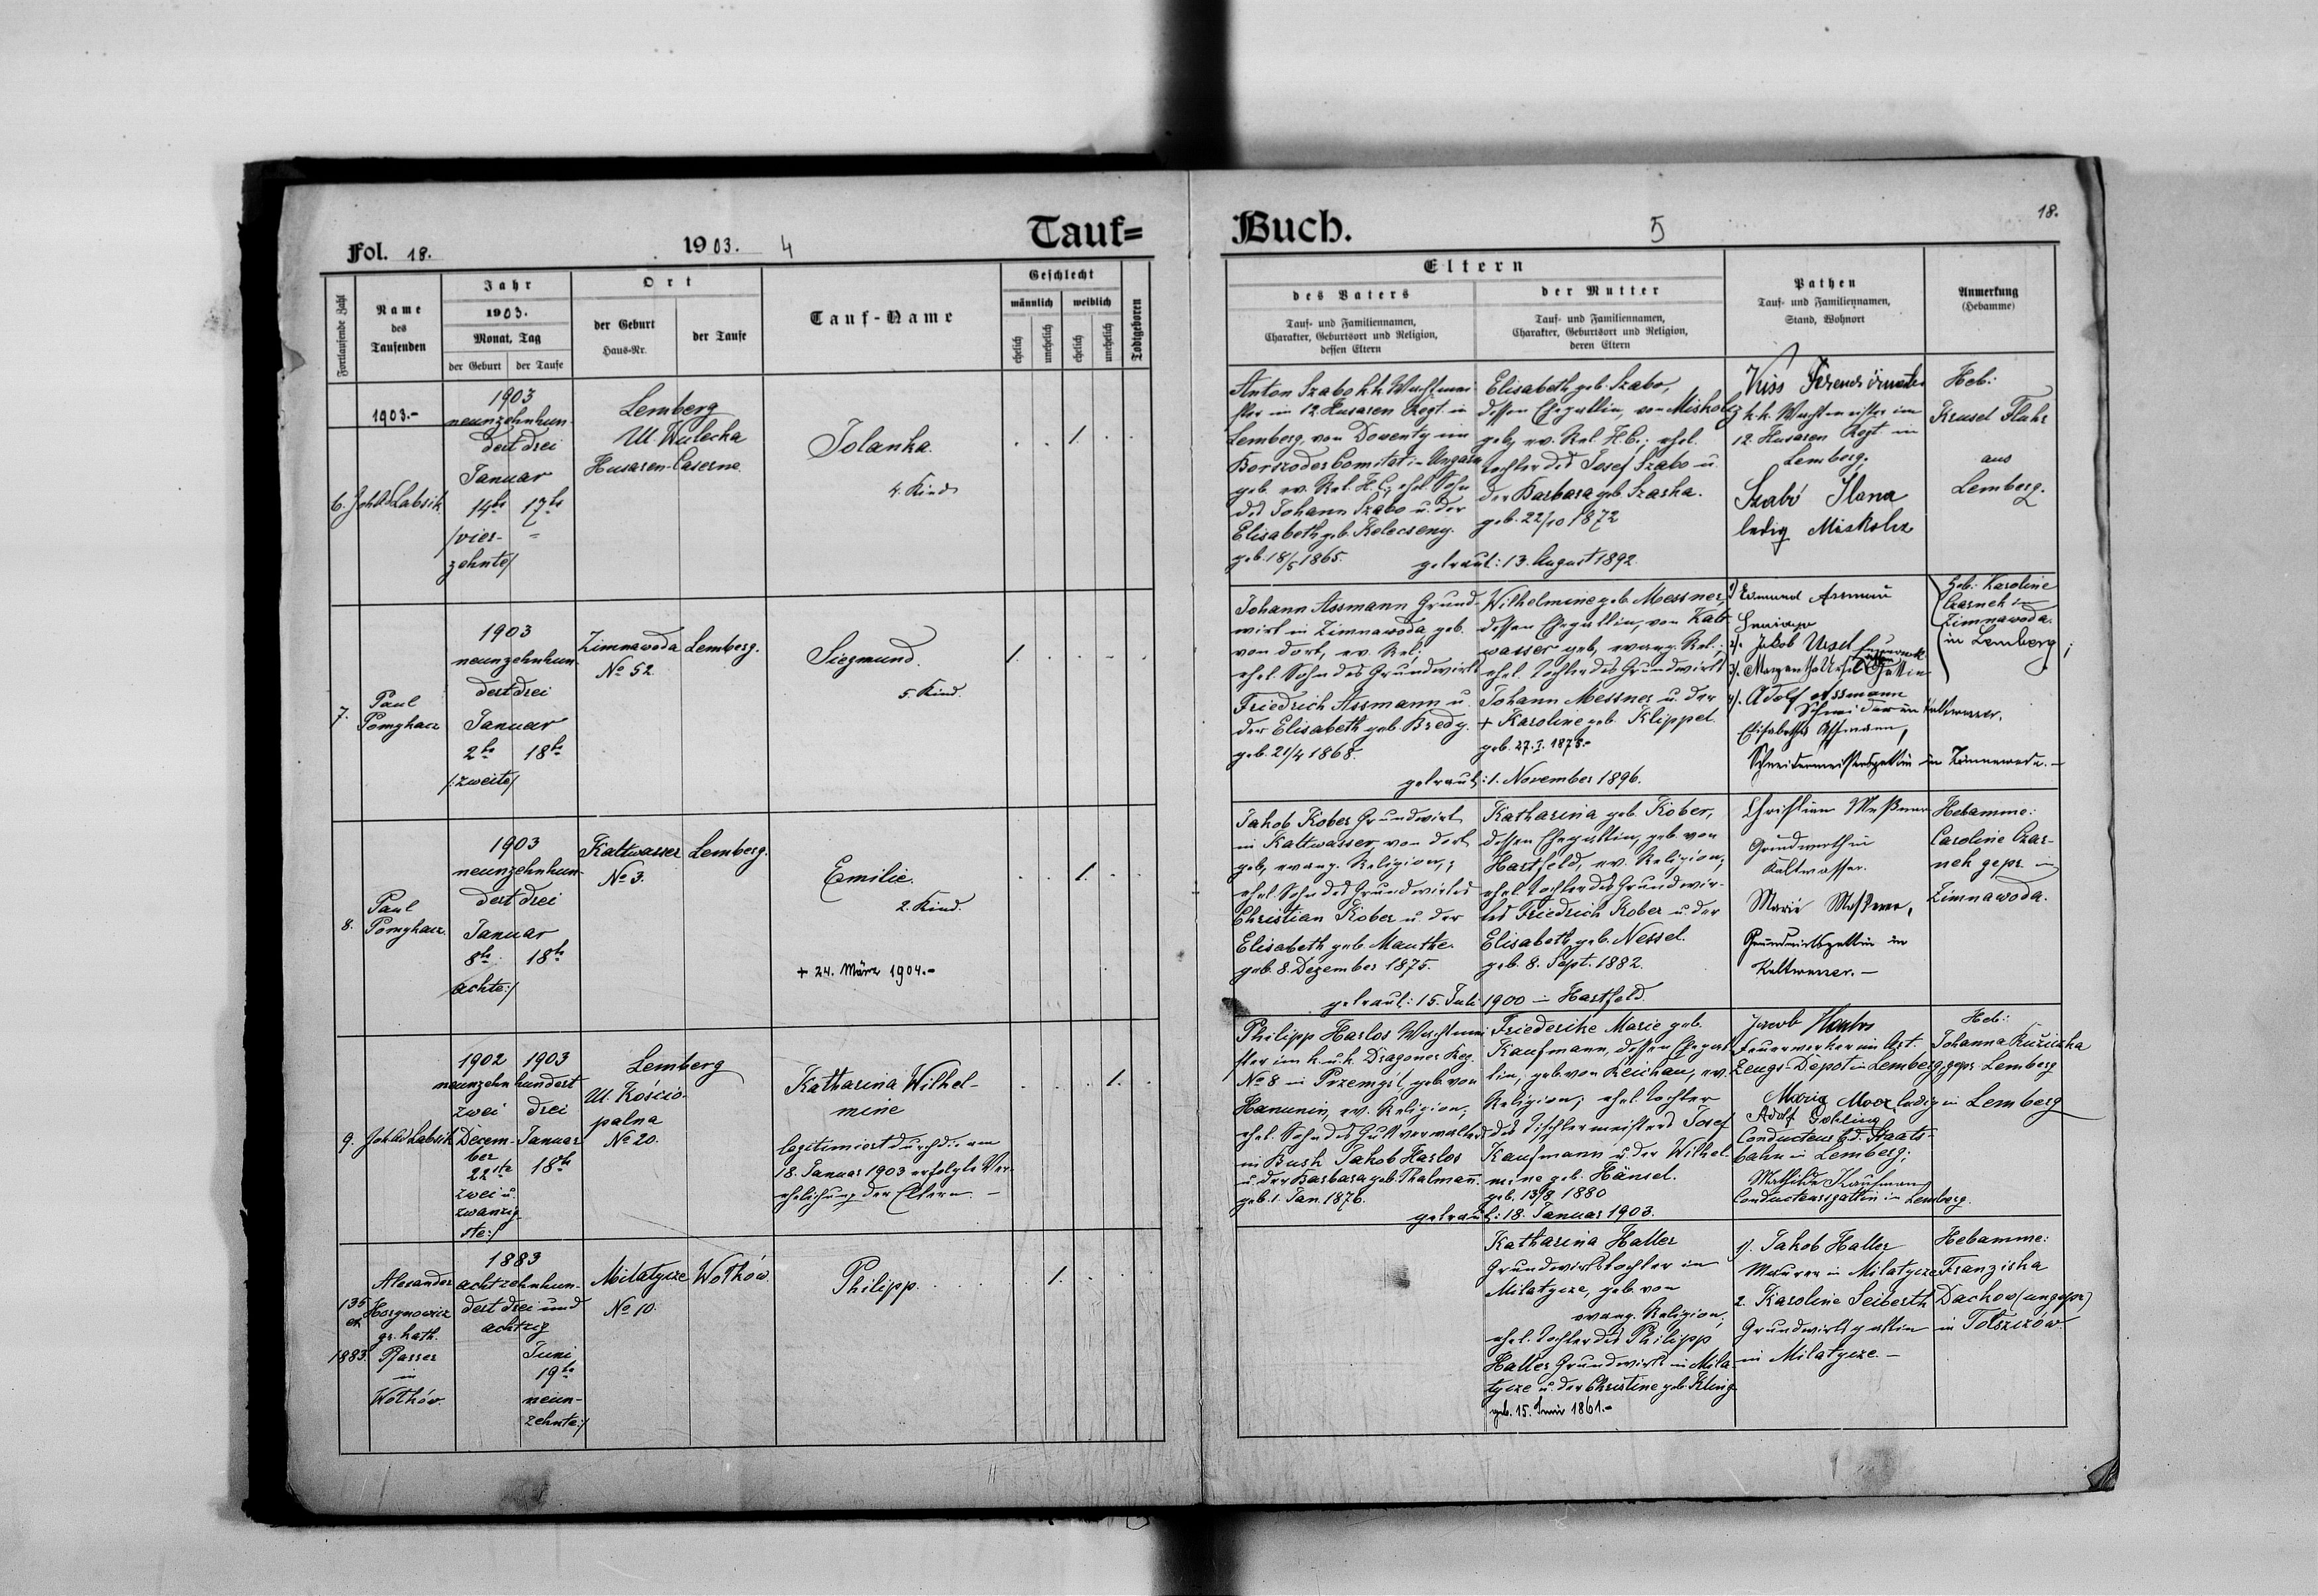 Fol. 18.
1903. 4
Tauf=
Fortlaufende Zahl
Name
des
Taufenden
Jahr
1903.
Monat, Tag
der Geburt
der Taufe
Ort
der Geburt
Haus-Nr.
der Taufe
Tauf-Name
Geschlecht
männlich
weiblich
ehelich
unehelich
ehelich
unehelich
Todtgeboren
1903.-
6. Joh.
1903
neunzehnhun-
dert drei
Januar
14te 17te
/vier-
zehnte/
Lemberg
Ul. Wulecka
Husaren-Caserne.
Jolanka.
4. Kind
1.
7.
Paul
1903
neunzehnhun-
dert drei
Januar
2te 18te
/:zweite/
Zimnawoda Lemberg.
No 52.
Siegmund.
5. Kind.
1.
8.
Paul
1903
neunzehnhun-
dert drei
Januar
8te 18te
achte:/
Kaltwasser Lemberg.
No 3.
Emilie.
2. Kind.
+ 24. März 1904.-
1.
9. Joh.
1902 1903
neunzehn hundert
zwei drei
Decem- Januar
ber
22ste 18te
zwei u.
zwanzig-
ste:/
Lemberg
Ul. Kościo-
palna
No 20.
Katharina Wilhel-
mine
legitimiert durch die am
18. Januar 1903 erfolgte Ver-
ehelichung der Eltern. -
1.
135
ex
1883.
Alexander
gr. kath.
Pfarrer
in
Wołków.
1883
achtzehnhun-
dert drei und
achtzig
Juni
19te
neun-
zehnte:/
Milatycze Wołków.
No 10.
Philipp.
1.
Buch.
5
18.
Eltern
des Vaters
Tauf- und Familiennamen,
Charakter, Geburtsort und Religion,
dessen Eltern
der Mutter
Tauf- und Familiennamen,
Charakter, Geburtsort und Religion,
deren Eltern
Pathen
Tauf- und Familiennamen,
Stand, Wohnort
Anmerkung
(Hebamme)
Anton Szabo k.k. Wachtmei-
ster im 12. Husaren Regt. in
Lemberg, von
Borszoder Comitat in Ungarn
geb. ev. Rel. H.C., ehel. Sohn
des Johann Szabo u. der
Elisabeth geb.
geb. 18/5 1865.
Elisabeth geb. Szabo,
dessen Ehegattin, von Miskolcz
geb. ev. Rel. H.C.; ehel.
Tochter des Josef Szabo u.
der Barbara geb.
geb. 22/10 1872
getraut: 13. August 1892.
Kiss
k.k. Wachtmeister im
12. Husaren Regt. in
Lemberg;
Szabó Ilona
ledig Miskolcz
Heb:
aus
Lemberg.
Johann Assmann Grund-
wirt in Zimnawoda geb.
von dort, ev. Rel;
ehel. Sohn des Grundwirts
Friedrich Assmann u.
der Elisabeth geb. Bredy.
geb. 21/4 1868.
Wilhelmine geb. Messner,
dessen Ehegattin, von Kalt-
wasser geb, evang. Rel.;
ehel. Tochter des Grundwirts
Johann Messner u. der
+ Karoline geb. Klippel.
geb. 27.3. 1878.-
getraut: 1. November 1896.
1)
2). Jakob Ursel
3). Gattin
4). Adolf Assmann
Schneider in Kaltwasser.
Elisabetha Assmann,
Schneidermeistersgattin in Zimnawoda. -
Heb: Karoline
Czarnek in
Zimnawoda.
in Lemberg;
Jakob Kober Grundwirt
in Kaltwasser, von dort
geb, evang. Religion;
ehel. Sohn des Grundwirtes
Christian Kober u. der
Elisabeth geb. Manthe.
geb. 8. Dezember 1875.
Katharina geb. Kober,
dessen Ehegattin, geb. von
Hartfeld, ev. Religion;
ehel. Tochter des Grundwir-
tes Friedrich Kober u. der
Elisabeth geb. Nessel.
geb. 8. Sept. 1882.
getraut: 15. Juli 1900 in Hartfeld.
Christian
Grundwirth in
Kaltwasser.
Marie
Grundwirtsgattin in
Kaltwasser. -
Hebamme:
Caroline Czar-
nek gepr. in
Zimnawoda.
Philipp Harlos Wachtmei-
ster im k.u.k. Dragoner Reg.
No 8 in Przemyśl, geb. von
Hanunin, ev. Religion;
ehel. Sohn des Gutsverwalters
in Busk Jakob Harlos
u. der Barbara geb. Thalmann.
geb. 1. Jan. 1876.
Friederike Marie geb.
Kaufmann, dessen Ehegat-
tin, geb. von Reichau, ev.
Religion; ehel. Tochter
des Tischlermeisters Josef
Kaufmann u. der Wilhel-
mine geb. Hänsel.
geb. 13/8 1880
getraut: 18. Januar 1903.
Jacob
Feuerwerker im Art.
Zeugs-Depot in Lemberg
Maria ledig in Lemberg
Adolf
Conducteur d. Staats-
bahn in Lemberg;
Mathilde Kaufmann
Conducteursgattin in Lemberg.
Heb:
Johanna
gepr. Lemberg
Katharina Haller
Grundwirtstochter in
Milatycze, geb. von
evang. Religion,
ehel. Tochter des Philipp
Haller Grundwirts in Mila-
tycze u. der Christine geb. Kling.
geb. 15. Juni 1861.-
1). Jakob Haller
Maurer in Milatycze
2. Karoline Seiberth
Grundwirtsgattin
in Milatycze. -
Hebamme:
Franziska
Dachow (ungepr)
in Tołszczów.